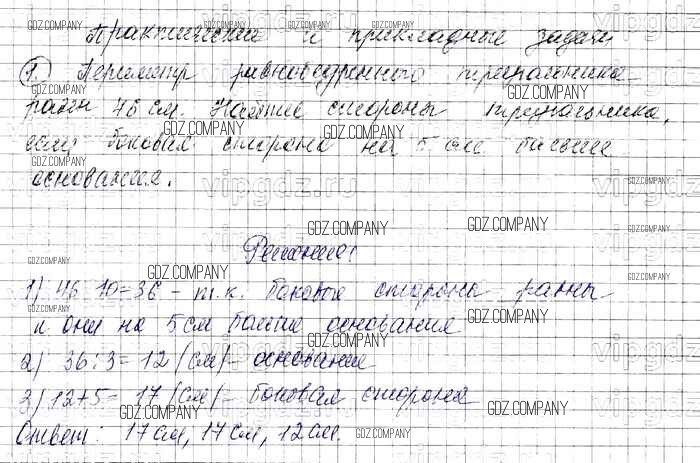 Практические и прикладные задачи
1. Периметр равнобедренного треугольника
равен 46 см. Найдите стороны треугольника,
если боковая сторона на 5 см больше
основания.
Решение:
1) 46-10=36 - т.к. боковые стороны равны
и они на 5 см больше основания
2) 36:3=12 (см) - основание
3) 12+5=17 (см) - боковая сторона
Ответ: 17 см, 17 см, 12 см.
GDZ.COMPANY
vipgdz.ru